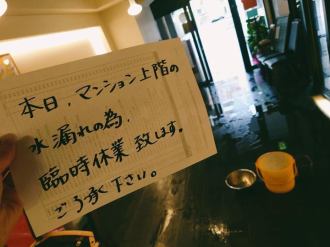 本日、マンション上階の
水漏れの為、
臨時休業 致します。
ご了承下さい。